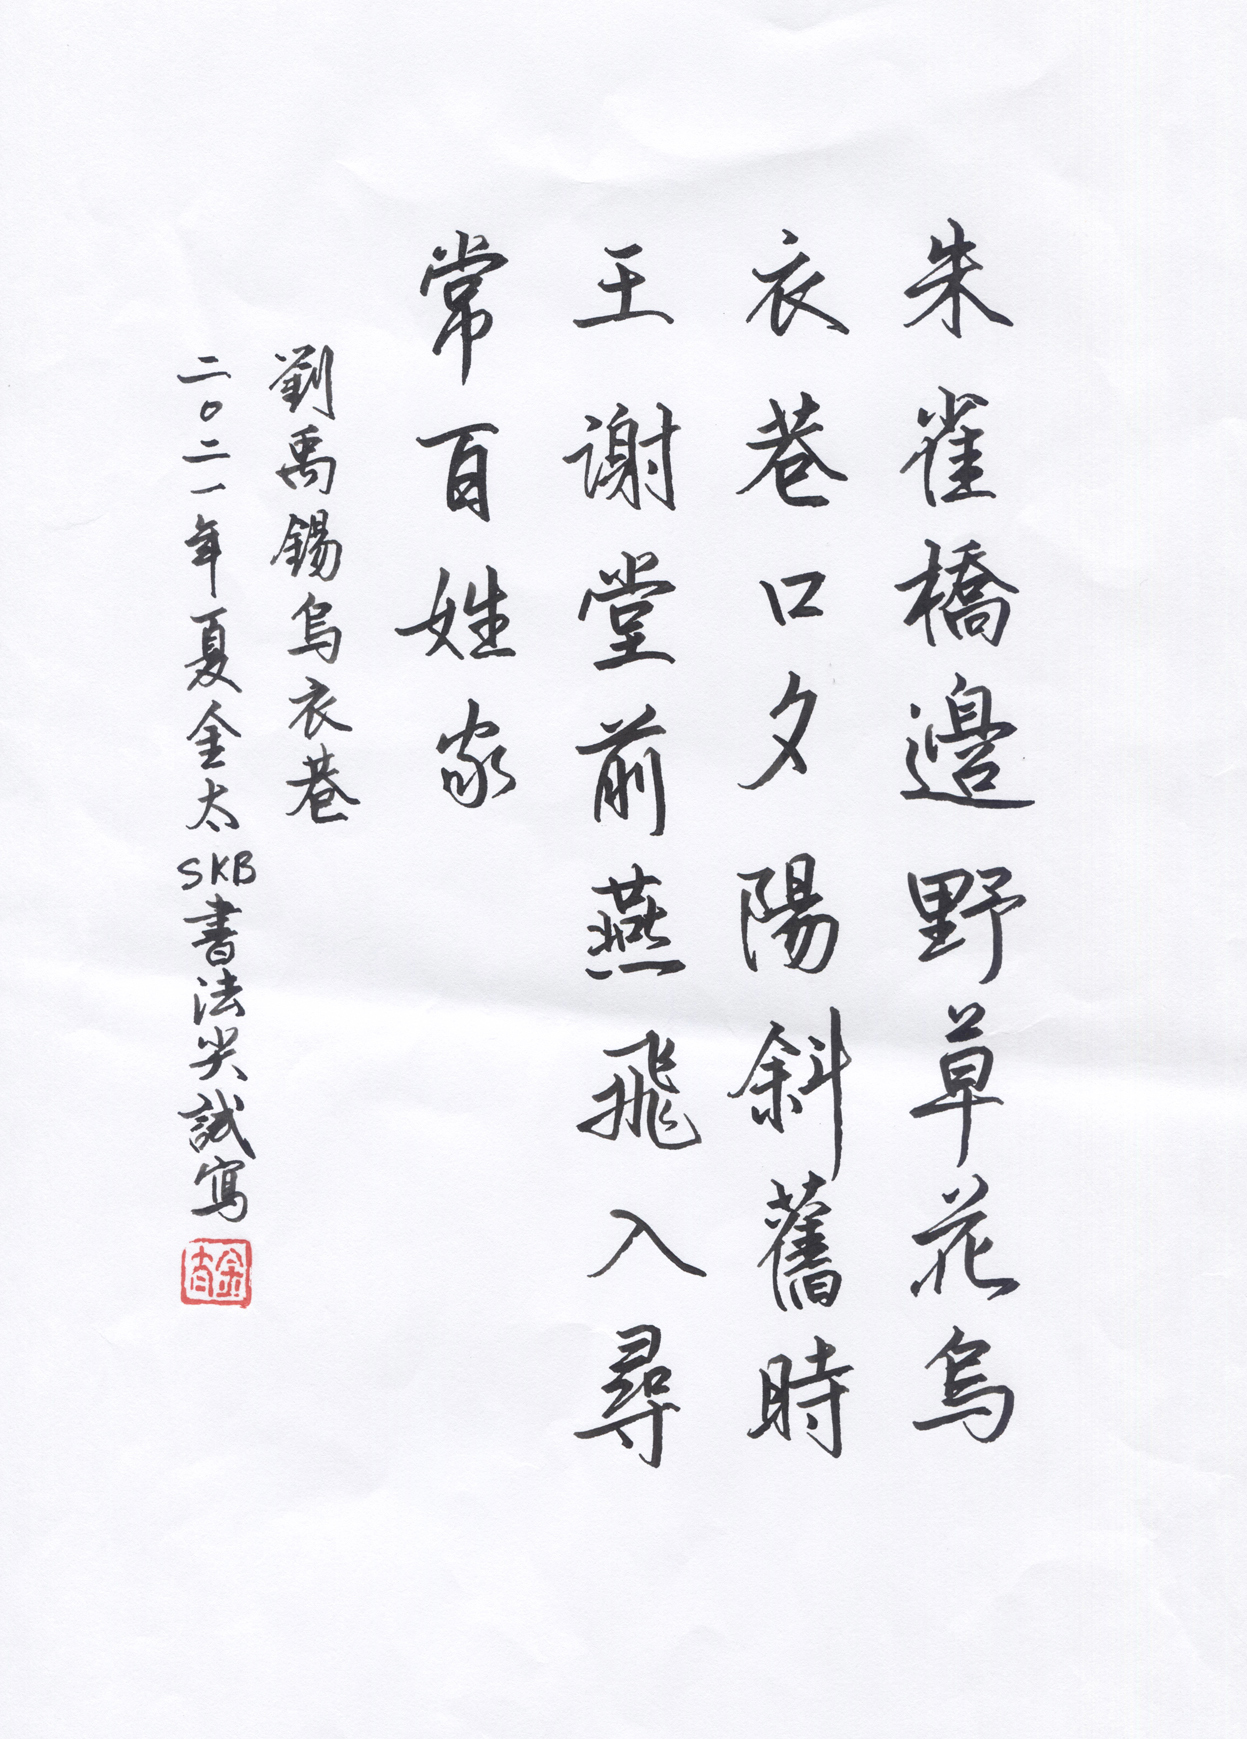 朱雀橋邊野草花烏
衣巷口夕陽斜舊時
王谢堂前燕飛入尋
常百姓家
劉禹錫烏衣巷
二〇二一年夏金太SKB書法尖誠寫
金太